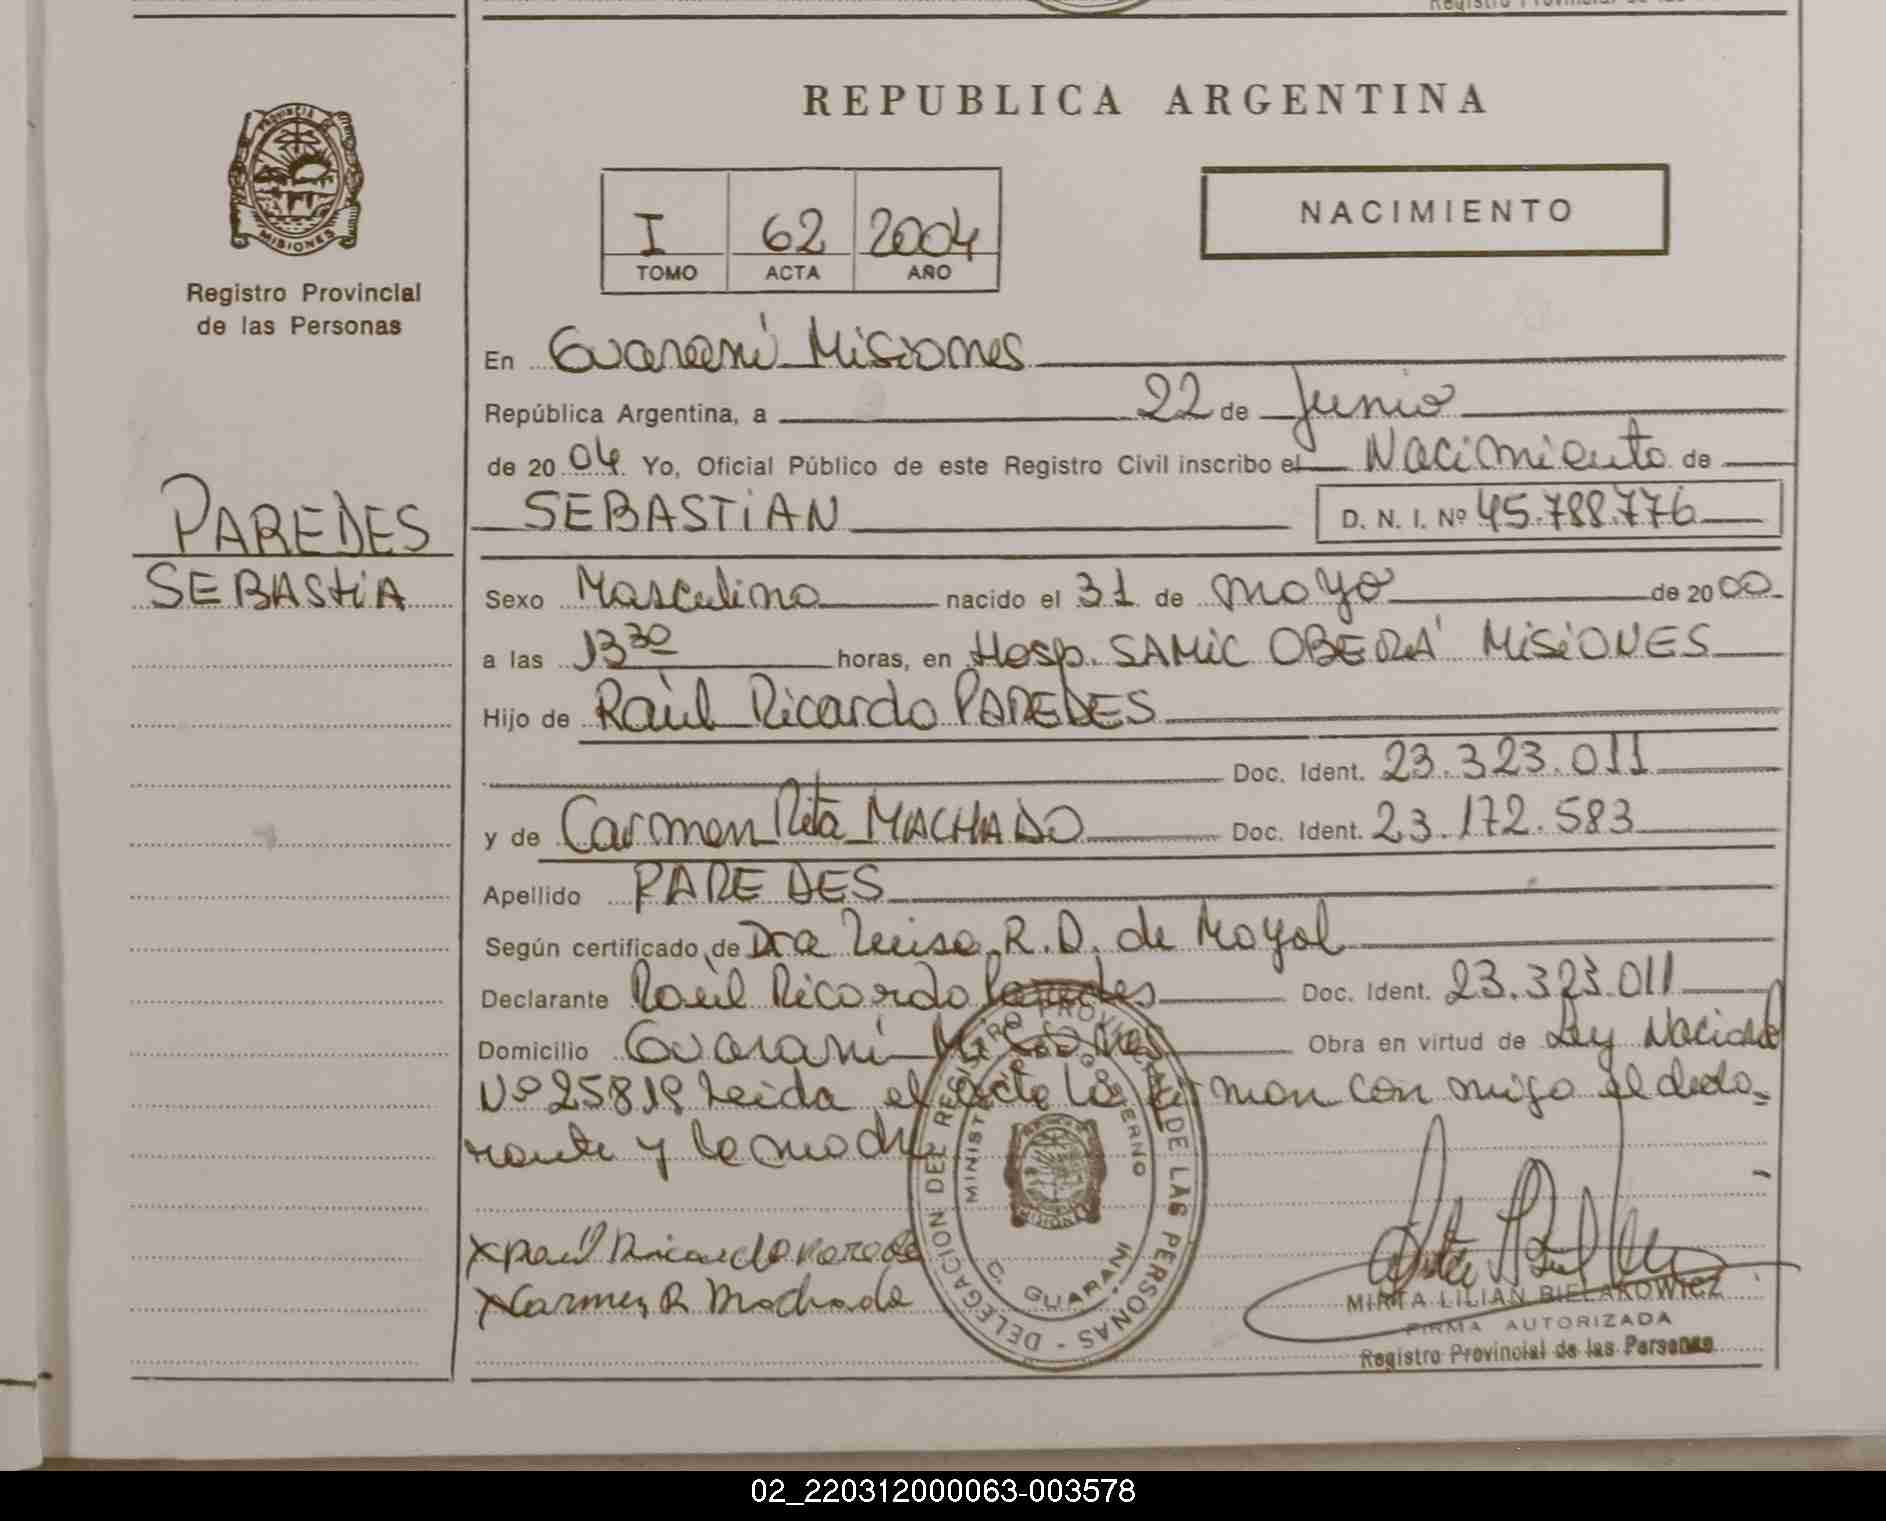 REPUBLICA ARGENTINA
PROVINCIA DE
MISIONES
Registro Provincial
de las Personas
I 62 2004
TOMO ACTA AÑO
NACIMIENTO
En Guaraní Misiones
República Argentina, a 22 de Junio
de 2004 Yo, Oficial Público de este Registro Civil inscribo el Nacimiento de
SEBASTIAN D. N. I. Nº 45.788.776
PAREDES
SEBASTIA
Sexo Masculino nacido el 31 de mayo de 2000
a las 13 30 horas, en Hosp. SAMIC OBERÁ MISIONES
Hijo de Raúl Ricardo PAREDES
Doc. Ident. 23.323.011
y de Carmen Rita MACHADO Doc. Ident. 23.172.583
Apellido PAREDES
Según certificado de Dra Luisa R.D. de Moyal
Declarante Raúl Ricardo Paredes Doc. Ident. 23.323.011
Domicilio Guaraní Misiones Obra en virtud de Ley Nacional
Nº 25819 Leida el acta la firman conmigo el decla-
rante y la madre
x Raúl Ricardo Paredes
x Carmen R Machado
DELEGACION DEL REGISTRO PROVINCIAL DE LAS PERSONAS
MINISTERIO DE GOBIERNO
C. GUARANI
MIRTA LILIAN BIELAKOWICZ
FIRMA AUTORIZADA
Registro Provincial de las Personas
02_220312000063-003578